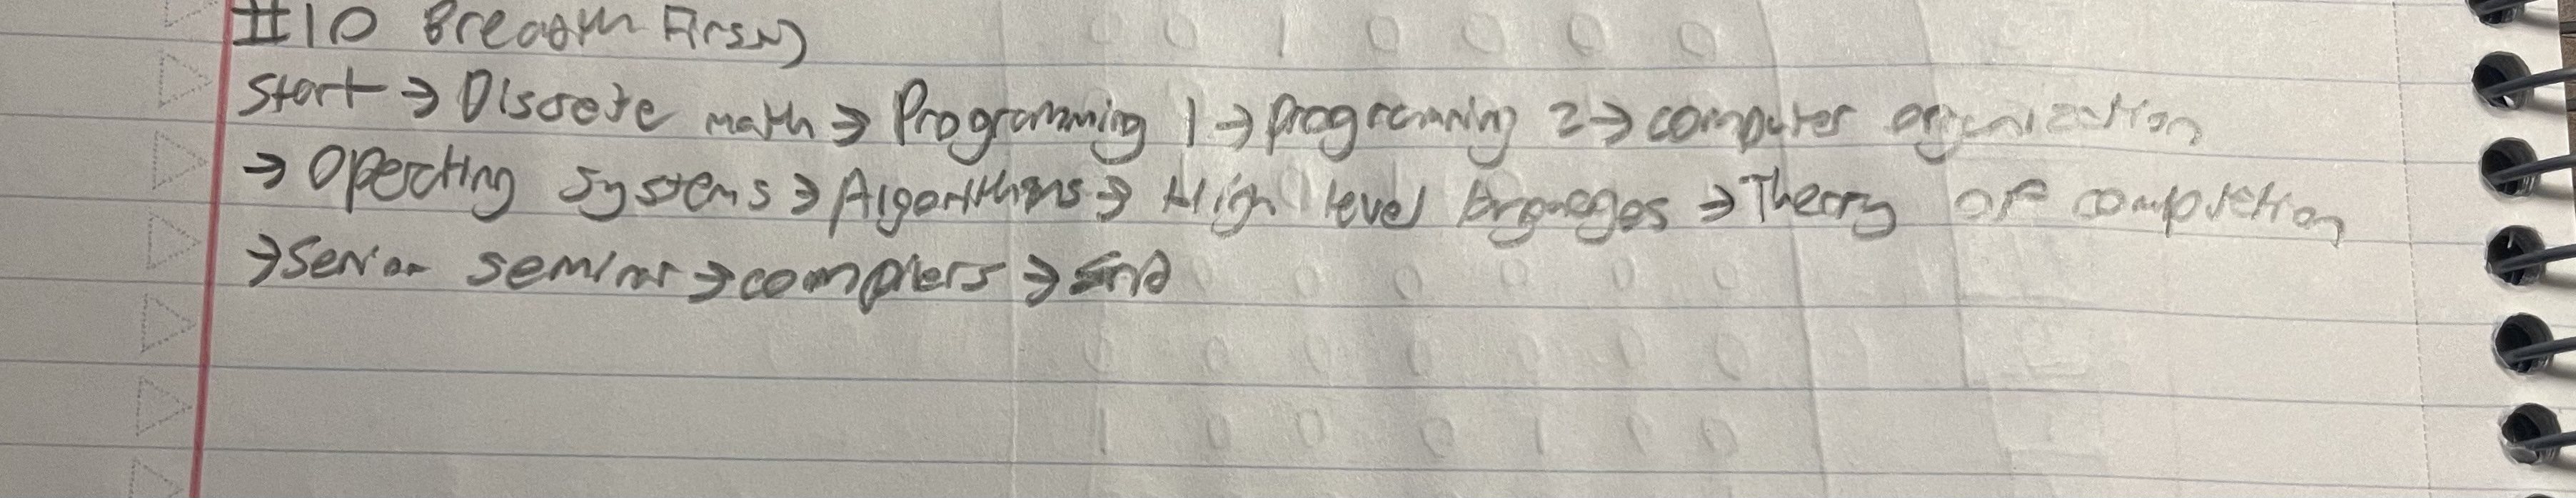 #10 Breadth First)
Start → Discrete math → Programming 1 → programming 2 → computer organization
→ Operating systems → Algorithms → High level languages → Theory of computation
→ Senior seminar → compilers → End